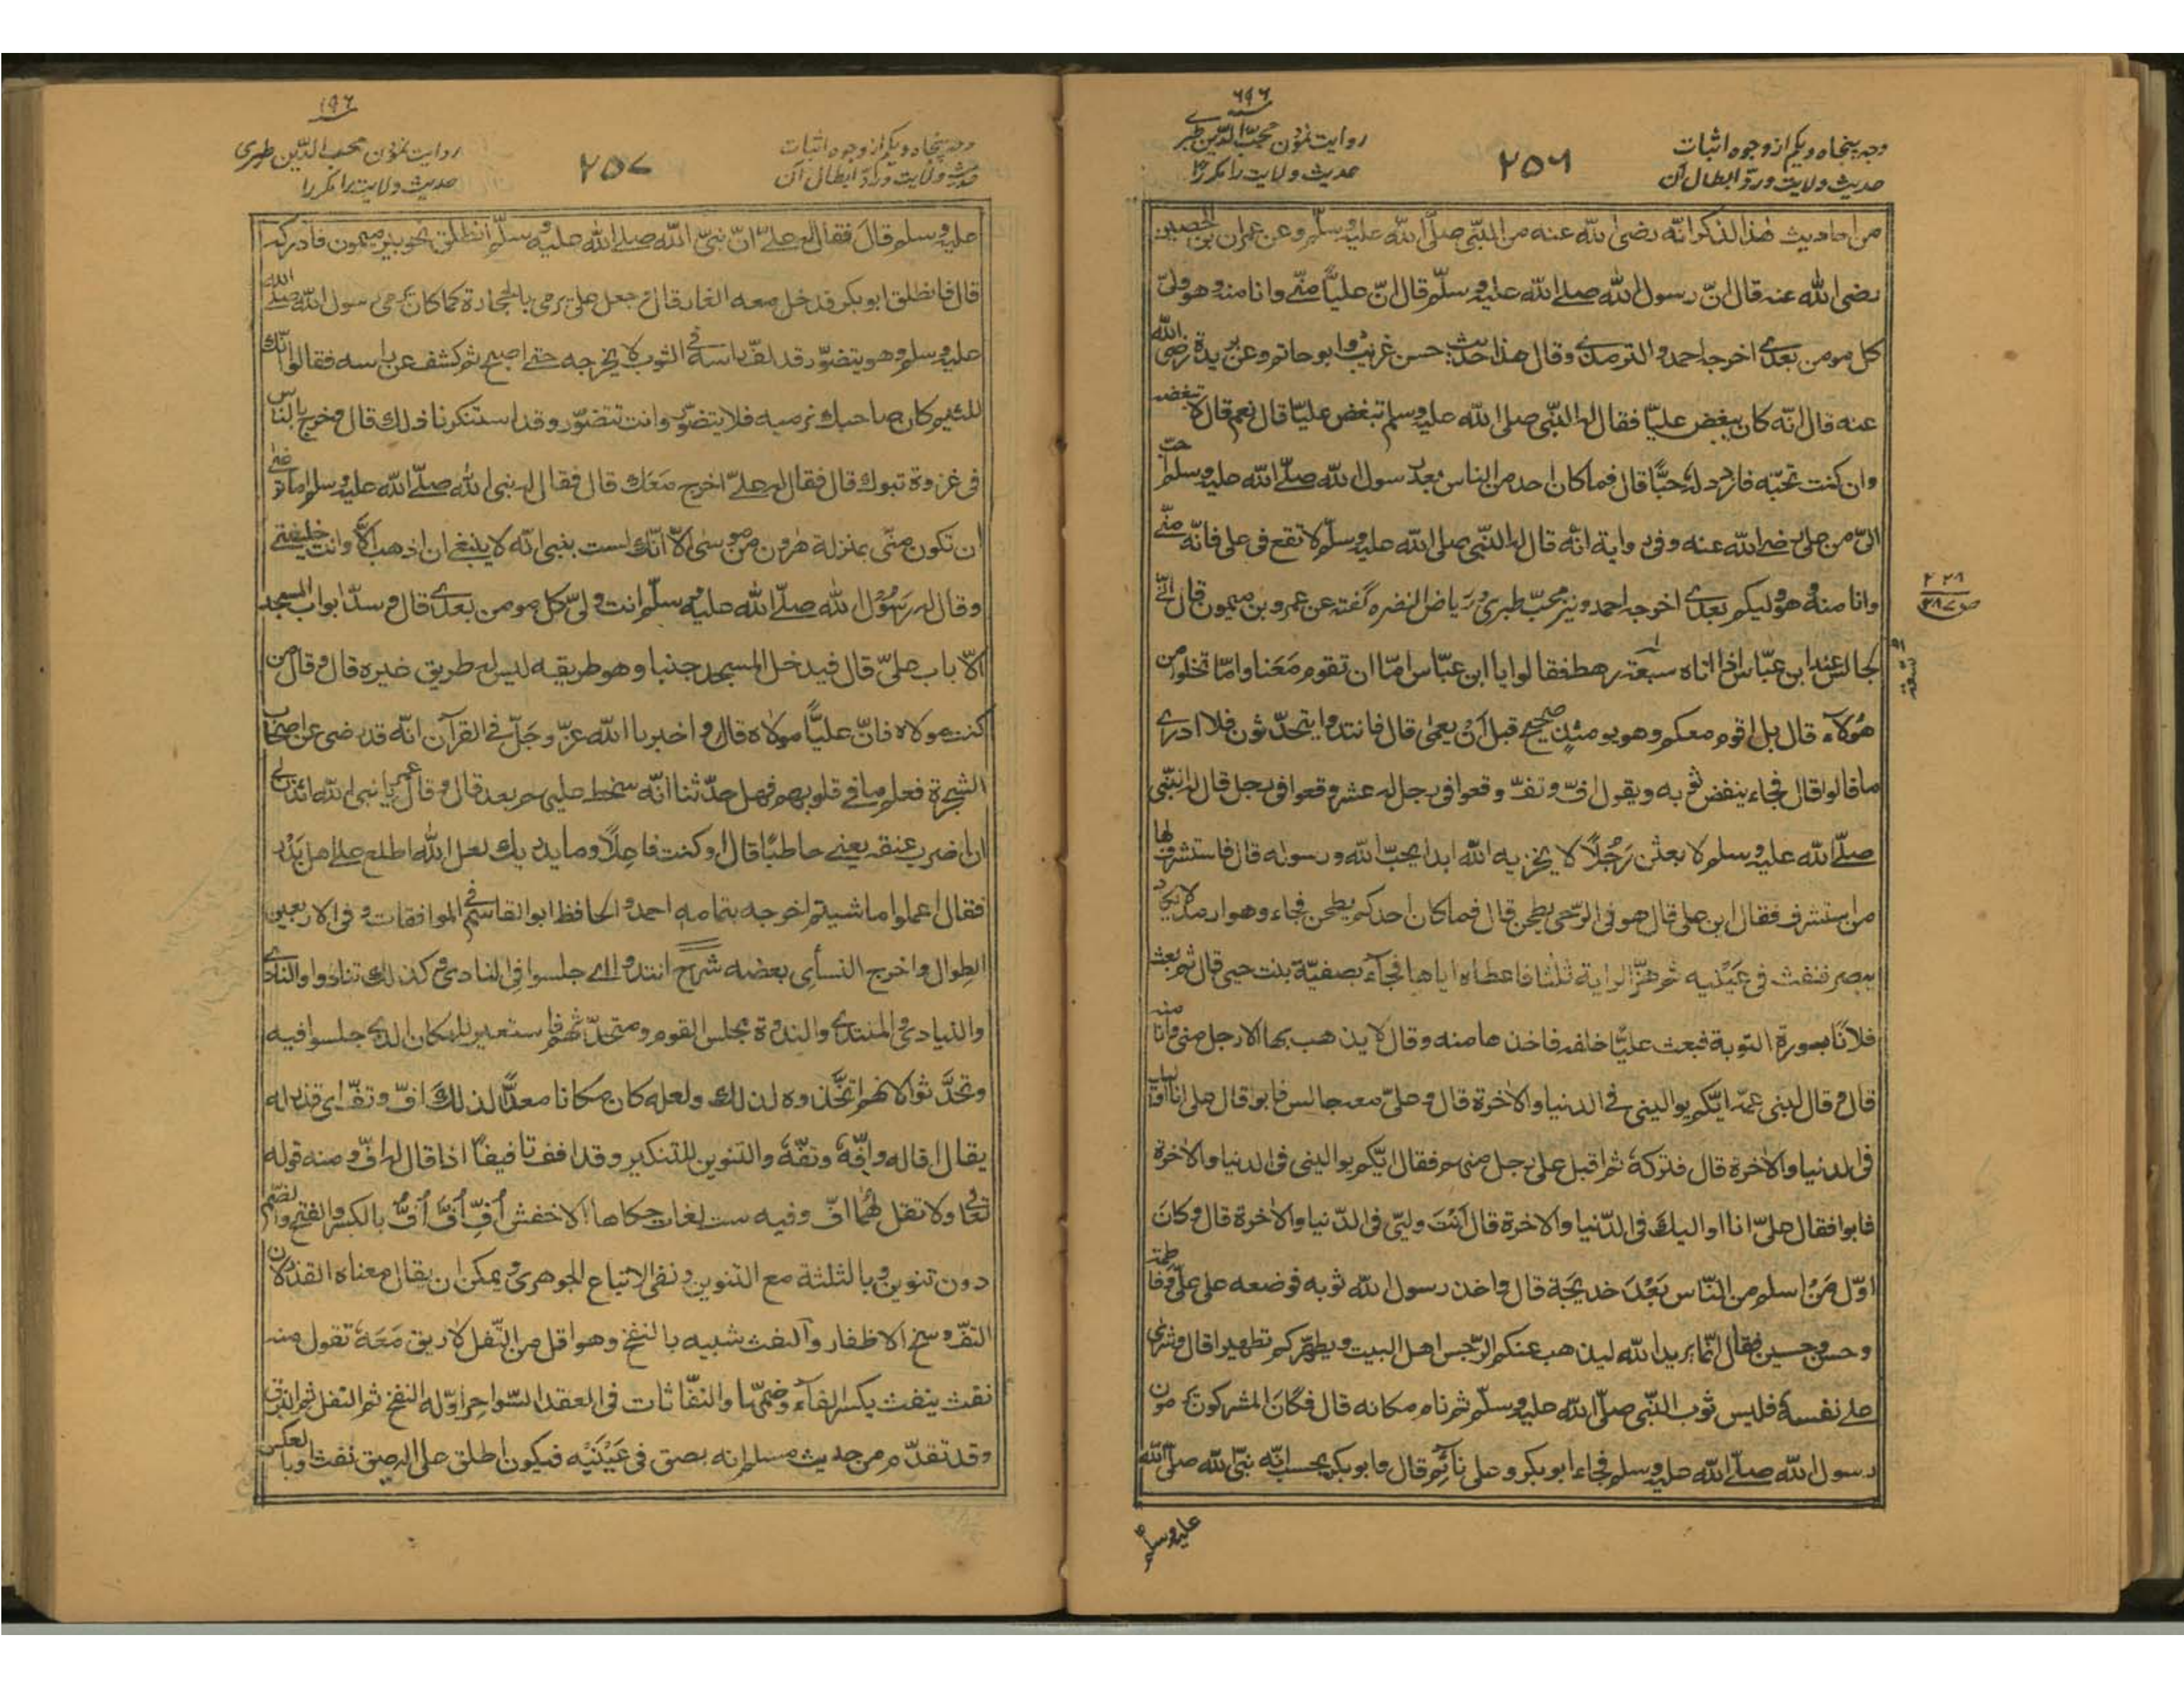 ۶۹۶
وجه پنجاه و یکم از وجوه اثبات
حدیث ولایت و ردّ ابطال آن
۲۵۶
روایت نمودن محبّ الدّین طبری
حدیث ولایت را مکررا
من احادیث هذا الذکر انّه رضی الله عنه من النّبی صلّی الله علیه وسلّم وعن عمران بن الحصین
رضی الله عنه قال انّ رسول الله صلے الله علیه وسلّم قال انّ علیًّا منّی وانا منه وهو ولیّ
کل مومن بعدی اخرجه احمد والترمذی وقال هذا حدیث حسن غریب وابو حاتم وعن بریدة رضی الله
عنه قال انّه کان یبغض علیّا فقال له النّبی صلی الله علیه وسلم تبغض علیّا قال نعم قال لا تبغضه
وان کنت تحبّه فازدد له حبًّا قال فما کان احد من الناس بعد رسول الله صلّے الله علیه وسلم احبّ
الیّ من علی رضی الله عنه وفی روایة انّه قال له النّبی صلی الله علیه وسلّم لا تقع فی علی فانّه منّی
وانا منه وهو ولیکم بعدی اخرجه احمد ونیز محبّ طبری در ریاض النضره گفته عن عمرو بن میمون قال انّی
لجالس عند ابن عبّاس اذا اتاه سبعة رهط فقالوا یا ابن عبّاس امّا ان تقوم مَعَنا وامّا تخلوا من
هٰؤلآء قال بل اقوم معکم وهو یومئذٍ صحیح قبل اَنْ یعمٰی قال فانتدوا یتحدّثون فلا ادری
ما قالوا قال فجاء ینفض ثوبه ویقول افّ وتفّ وقعوا فی رجل له عشر وقعوا فی رجل قال له النبّی
صلّے الله علیه وسلم لابعثن رَجُلًا لا یخزیه الله ابدا یحبّ الله ورسوله قال فاستشرف لها
من استشرف فقال این علی قال هو فی الرّحی یطحن قال فما کان احدکم یطحن فجاء وهو ارمد لا یکاد
یبصر فنفث فی عَیْنَیه ثم هزّ الرایة ثلٰثا فاعطاه ایاها فجآء بصفیّة بنت حیی قال ثم بعث
فلانًا بسورة التوبة فبعث علیًّا خلفه فاخذها منه وقال لا یذهب بها الا رجل منی وانا منه
قال وقال لبنی عمّه ایّکم یوالینی فے الدنیا والاخرة قال وعلیّ معه جالس فابوا قال علی انا اوالیک
فی الدنیا والاخرة قال فترکهٗ ثم اقبل علی رجل منهم فقال ایّکم یوالینی فی الدنیا والاخرة
فابوا فقال علیّ انا اوالیک فی الدّنیا والاخرة قال اَنْتَ ولیّی فی الدّنیا والاخرة قال وکانَ
اوّل مَنْ اسلم من النّاس بَعْدَ خدیجَة قال واخذ رسول الله ثوبه فوضعه علی علیّ وفاطمة
وحسن وحسین فقال انّما یرید الله لیذهب عنکم الرّجس اهل البیت ویطهّرکم تطهیرا قال وشری
علے نفسهٗ فلبس ثوب النّبی صلّی الله علیه وسلّم ثم نام مکانه قال فکَانَ المشرکون یرمون
رسول الله صلّے الله علیه وسلم فجاء ابو بکر وعلی نآئم قال وابو بکر یحسب انّه نبیّ الله صلّی الله
علیه وسلم
تسعة
صـ۳۸۷
۱۹۶
وجه پنجاه و یکم از وجوه اثبات
حدیث ولایت و ردّ ابطال آن
۲۵۷
روایت نمودن محب الدّین طبری
حدیث ولایت را مکررا
علیه وسلم قالَ فقال له علیّ انّ نبیّ الله صلے الله علیه وسلّم انطلق نحو بئر میمون فادرکه
قال فانطلق ابو بکر فدخل معه الغار قال وجعل علیّ یرمی بالحجارة کما کان یرمی رسول الله صلے الله
علیه وسلم وهو یتضوّر قد لفّ راسه فی الثوب لا یخرجه حتے اصبح ثم کشف عن راسه فقالوا انّک
للئیم کان صاحبک نرمیه فلا یتضوّر وانت تتضوّر وقد استنکرنا ذلک قال وخرج بالنّاس
فی غزوة تبوک قال فقال له علیّ اخرج مَعَک قال فقال له نبی الله صلّے الله علیه وسلم اما ترضٰی
ان تکون منّی بمنزلة هٰرون من موسٰی الّا انّک لست بنبی انّه لا ینبغی ان اذهب الّا وانت خلیفتی
وقال له رَسُوْل الله صلّے الله علیه وسلّم انت ولیّ کل مومن بعدی قال وسدّ ابواب المسجد
الّا باب علیّ قال فیدخل المسجد جنبا وهو طریقه لیس له طریق غیره قال وقال من
کنت مولاه فانّ علیًّا مولاه قال واخبرنا الله عزّ وجَلّ فے القرآن انّه قد رضی عن اصحاب
الشجرة فعلم ما فی قلوبهم فهل حدّثنا انّه سخط علیهم بعد قال وقال عمر یا نبی الله ائذن لی
ان اضرب عنقه یعنی حاطبًا قال او کنت فاعِلًا وما یدریک لعل الله اطلع علی اهل بَدْر
فقال اعملوا ما شیتم اخرجه بتمامه احمد والحافظ ابو القاسم فی الموافقات وفی الاربعین
الطوال واخرج النسأی بعضه شرح انتدوا ای جلسوا فی النادی وکذلک تنادوا والنادی
والندی والمنتدی والندوة مجلس القوم ومتحدّثهم فاستعیر للمکان الذی جلسوا فیه
وتحدَّثوا لانهم اتّخذوه لذلک ولعله کان مکانا معدًّا لذلک افّ وتفّ ای قذر له
یقال افّا له وافّةً وتفّةً والتنوین للتنکیر وقد افف تافیفًا اذا قال له افّ ومنه قوله
تعالی ولا تقل لهُما افّ وفیه ست لغات حکاها الاخفش اُفِّ اُفَّ اُفُّ بالکسر والفتح والضّم
دون تنوین وبالثلثة مع التنوین وتفّ الاتباع الجوهری ویمکن ان یقال معناه القذر لان
التفّ وسخ الاظفار وآلنفث شبیه بالنفخ وهو اقل من التّفل لا ریق مَعَهٗ تقول منه
نفث ینفث بکسر الفآء وضمّها والنفّاثات فی العقد السّواحِر اوّله النفخ ثم التفل ثم البزق
وقد تقدّم من حدیث مسلم انه بصق فی عَیْنَیْه فیکون اطلق علی البصق نفث اوبالعکس